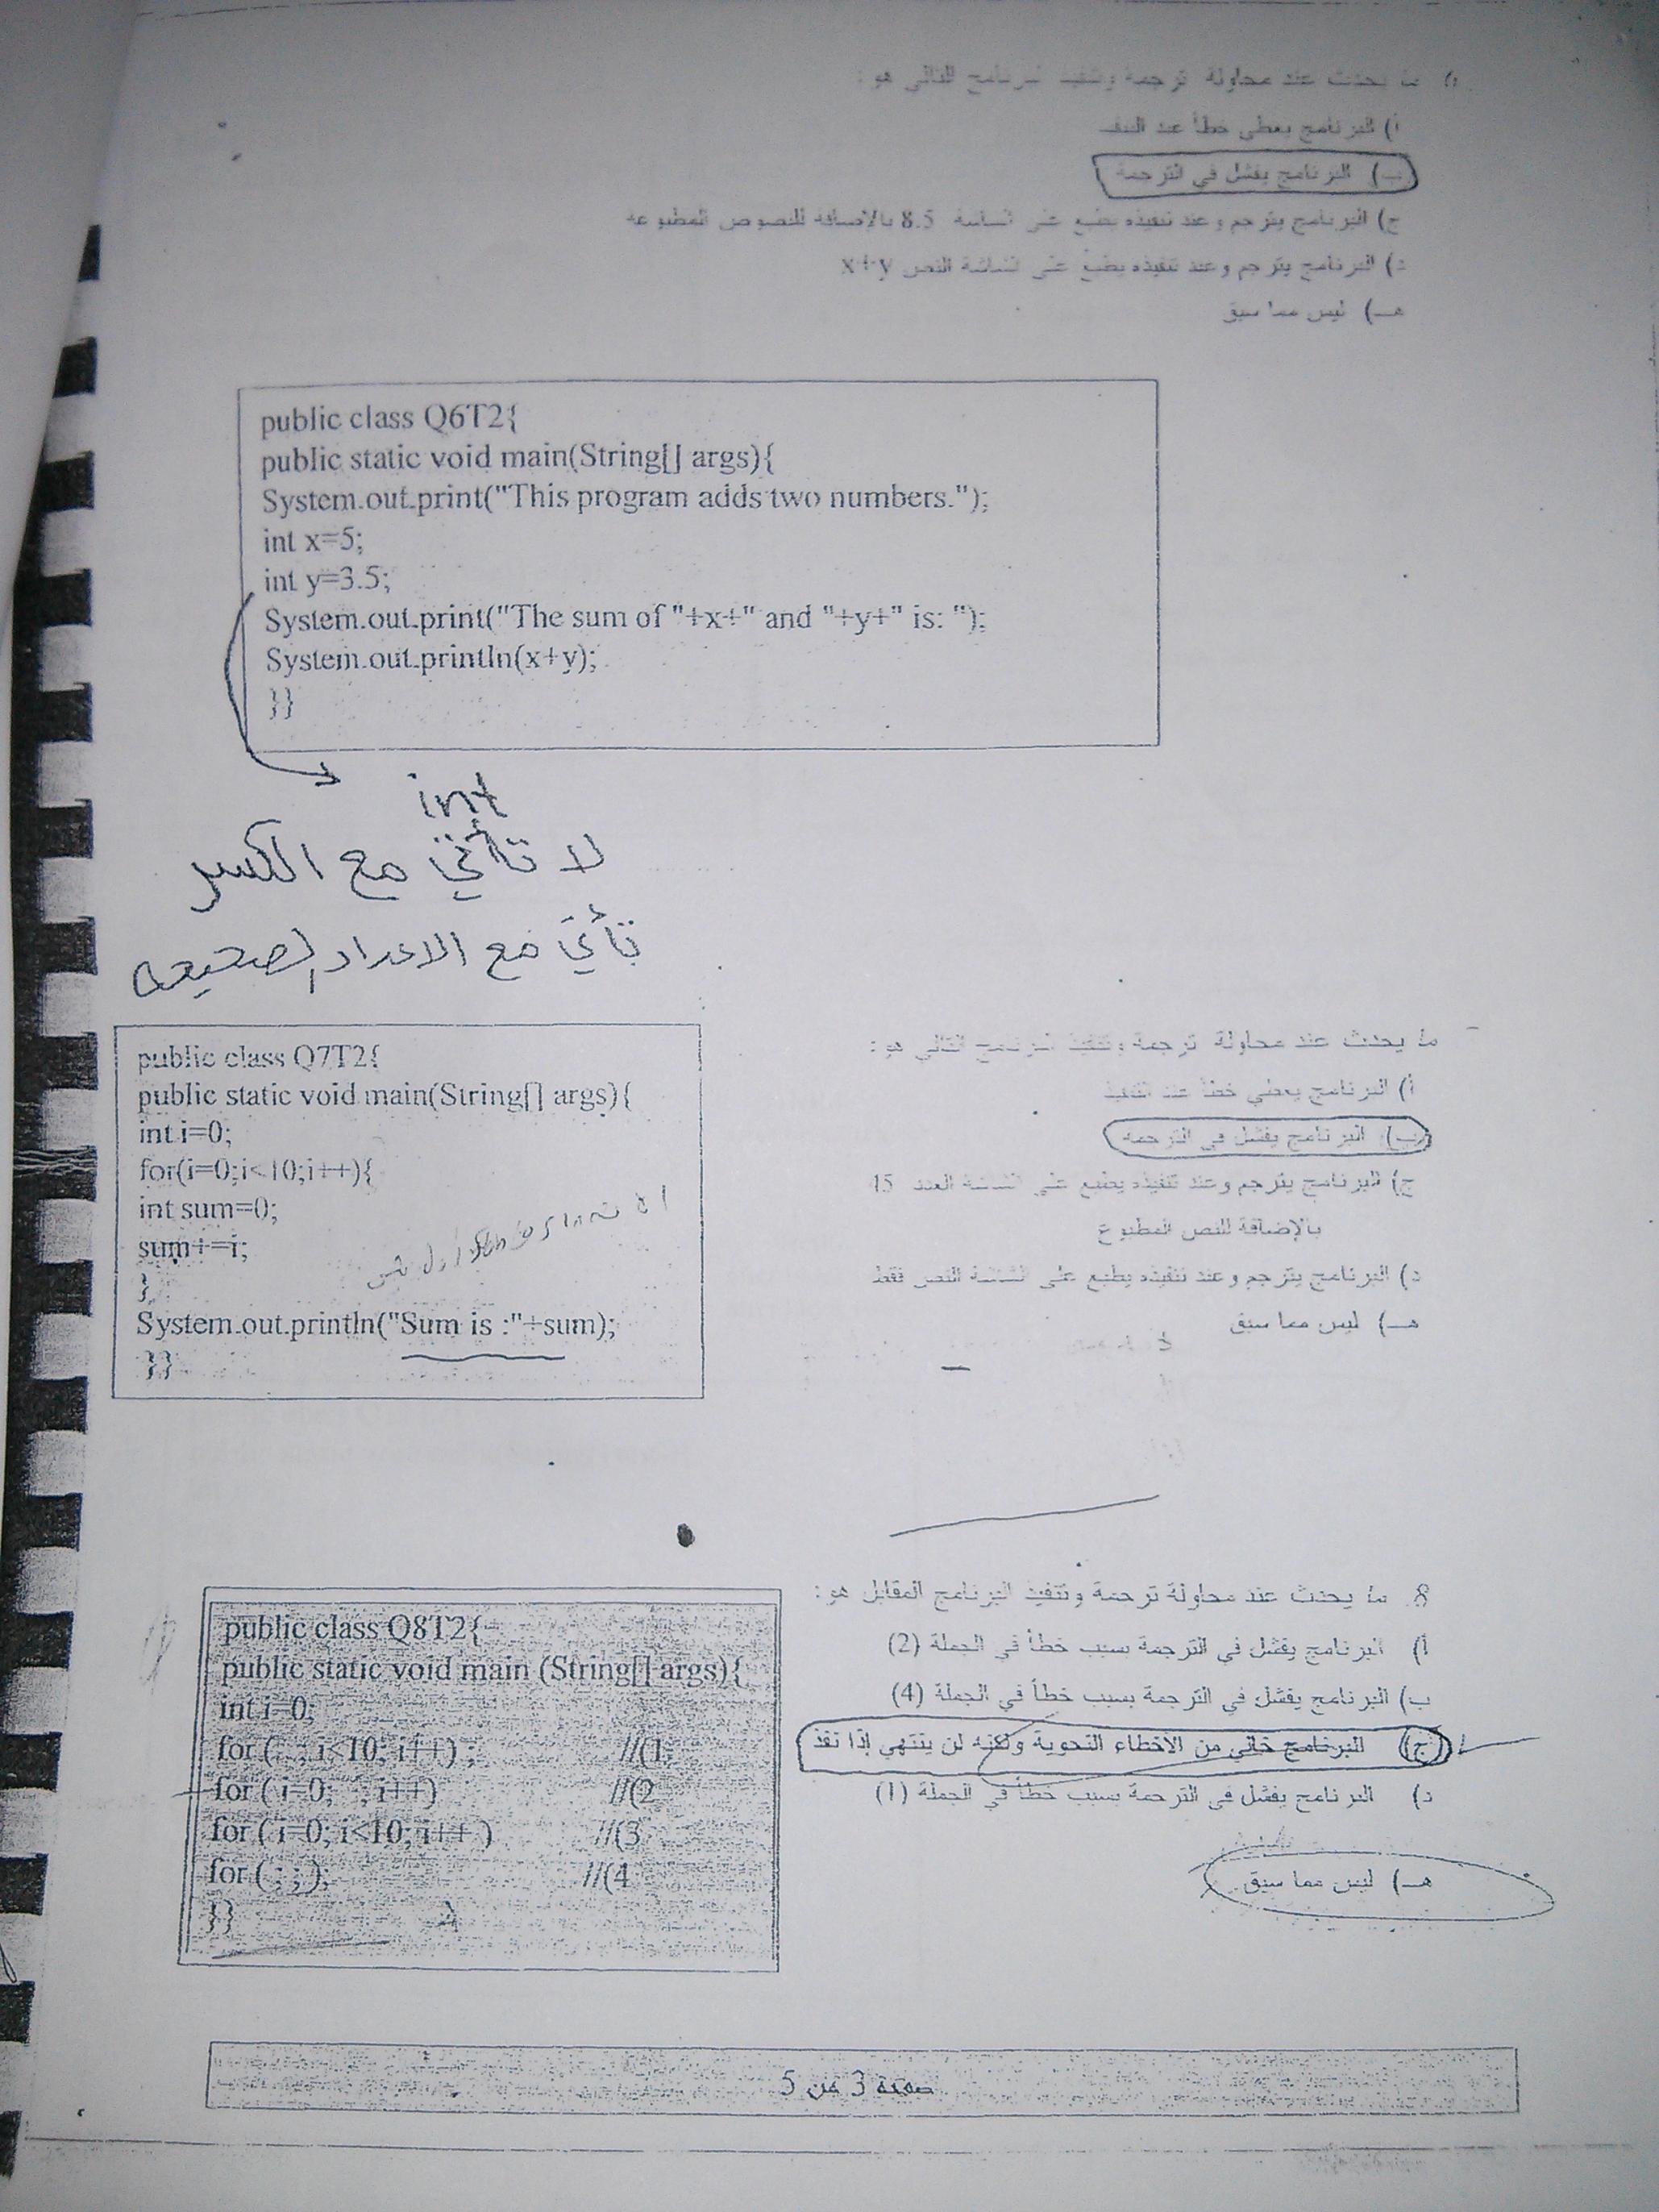 ما يحدث عند محاولة ترجمة وتنفيذ البرنامج التالي هو :
أ) البرنامج يعطي خطأ عند التنفيذ
ب) البرنامج يفشل في الترجمة
ج) البرنامج يترجم وعند تنفيذه يطبع على الشاشة 8.5 بالإضافة للنصوص المطبوعة
د) البرنامج يترجم وعند تنفيذه يطبع على الشاشة النص x+y
هـ) ليس مما سبق
public class Q6T2{
public static void main(String[] args){
System.out.print("This program adds two numbers.");
int x=5;
int y=3.5;
System.out.print("The sum of "+x+" and "+y+" is: ");
System.out.println(x+y);
}}
int
لا تأتي مع الكسر
تأتي مع الاعداد الصحيحه
ما يحدث عند محاولة ترجمة وتنفيذ البرنامج التالي هو :
أ) البرنامج يعطي خطأ عند التنفيذ
ب) البرنامج يفشل في الترجمة
ج) البرنامج يترجم وعند تنفيذه يطبع على الشاشة العدد 45
بالإضافة للنص المطبوع
د) البرنامج يترجم وعند تنفيذه يطبع على الشاشة النص فقط
هـ) ليس مما سبق
public class Q7T2{
public static void main(String[] args){
int i=0;
for(i=0;i<10;i++){
int sum=0;
sum+=i;
}
System.out.println("Sum is :"+sum);
}}
8. ما يحدث عند محاولة ترجمة وتنفيذ البرنامج المقابل هو :
أ) البرنامج يفشل في الترجمة بسبب خطأ في الجملة (2)
ب) البرنامج يفشل في الترجمة بسبب خطأ في الجملة (4)
ج) البرنامج خالي من الأخطاء النحوية ولكنه لن ينتهي إذا نفذ
د) البرنامج يفشل في الترجمة بسبب خطأ في الجملة (1)
هـ) ليس مما سبق
public class Q8T2{
public static void main (String[] args){
int i=0;
for ( ; i<10; i++) ; //(1
for ( i=0; ; i++) //(2
for ( i=0; i<10; i++ ) //(3
for ( ; ; ); //(4
}}
صفحة 3 من 5